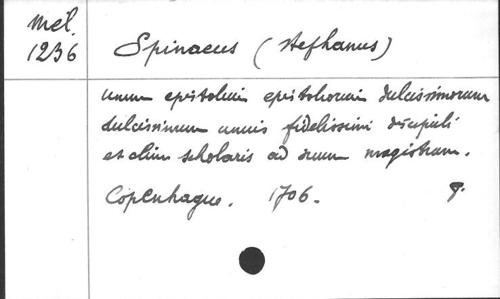 Mél.
1236
Spinaeus (Stephanus)
unum epistolium epistoliorum dulcissimorum
dulcissimum unius fidelissimi discipuli
et olim scholaris ad suum magistrum.
Copenhague. 1706. 8.